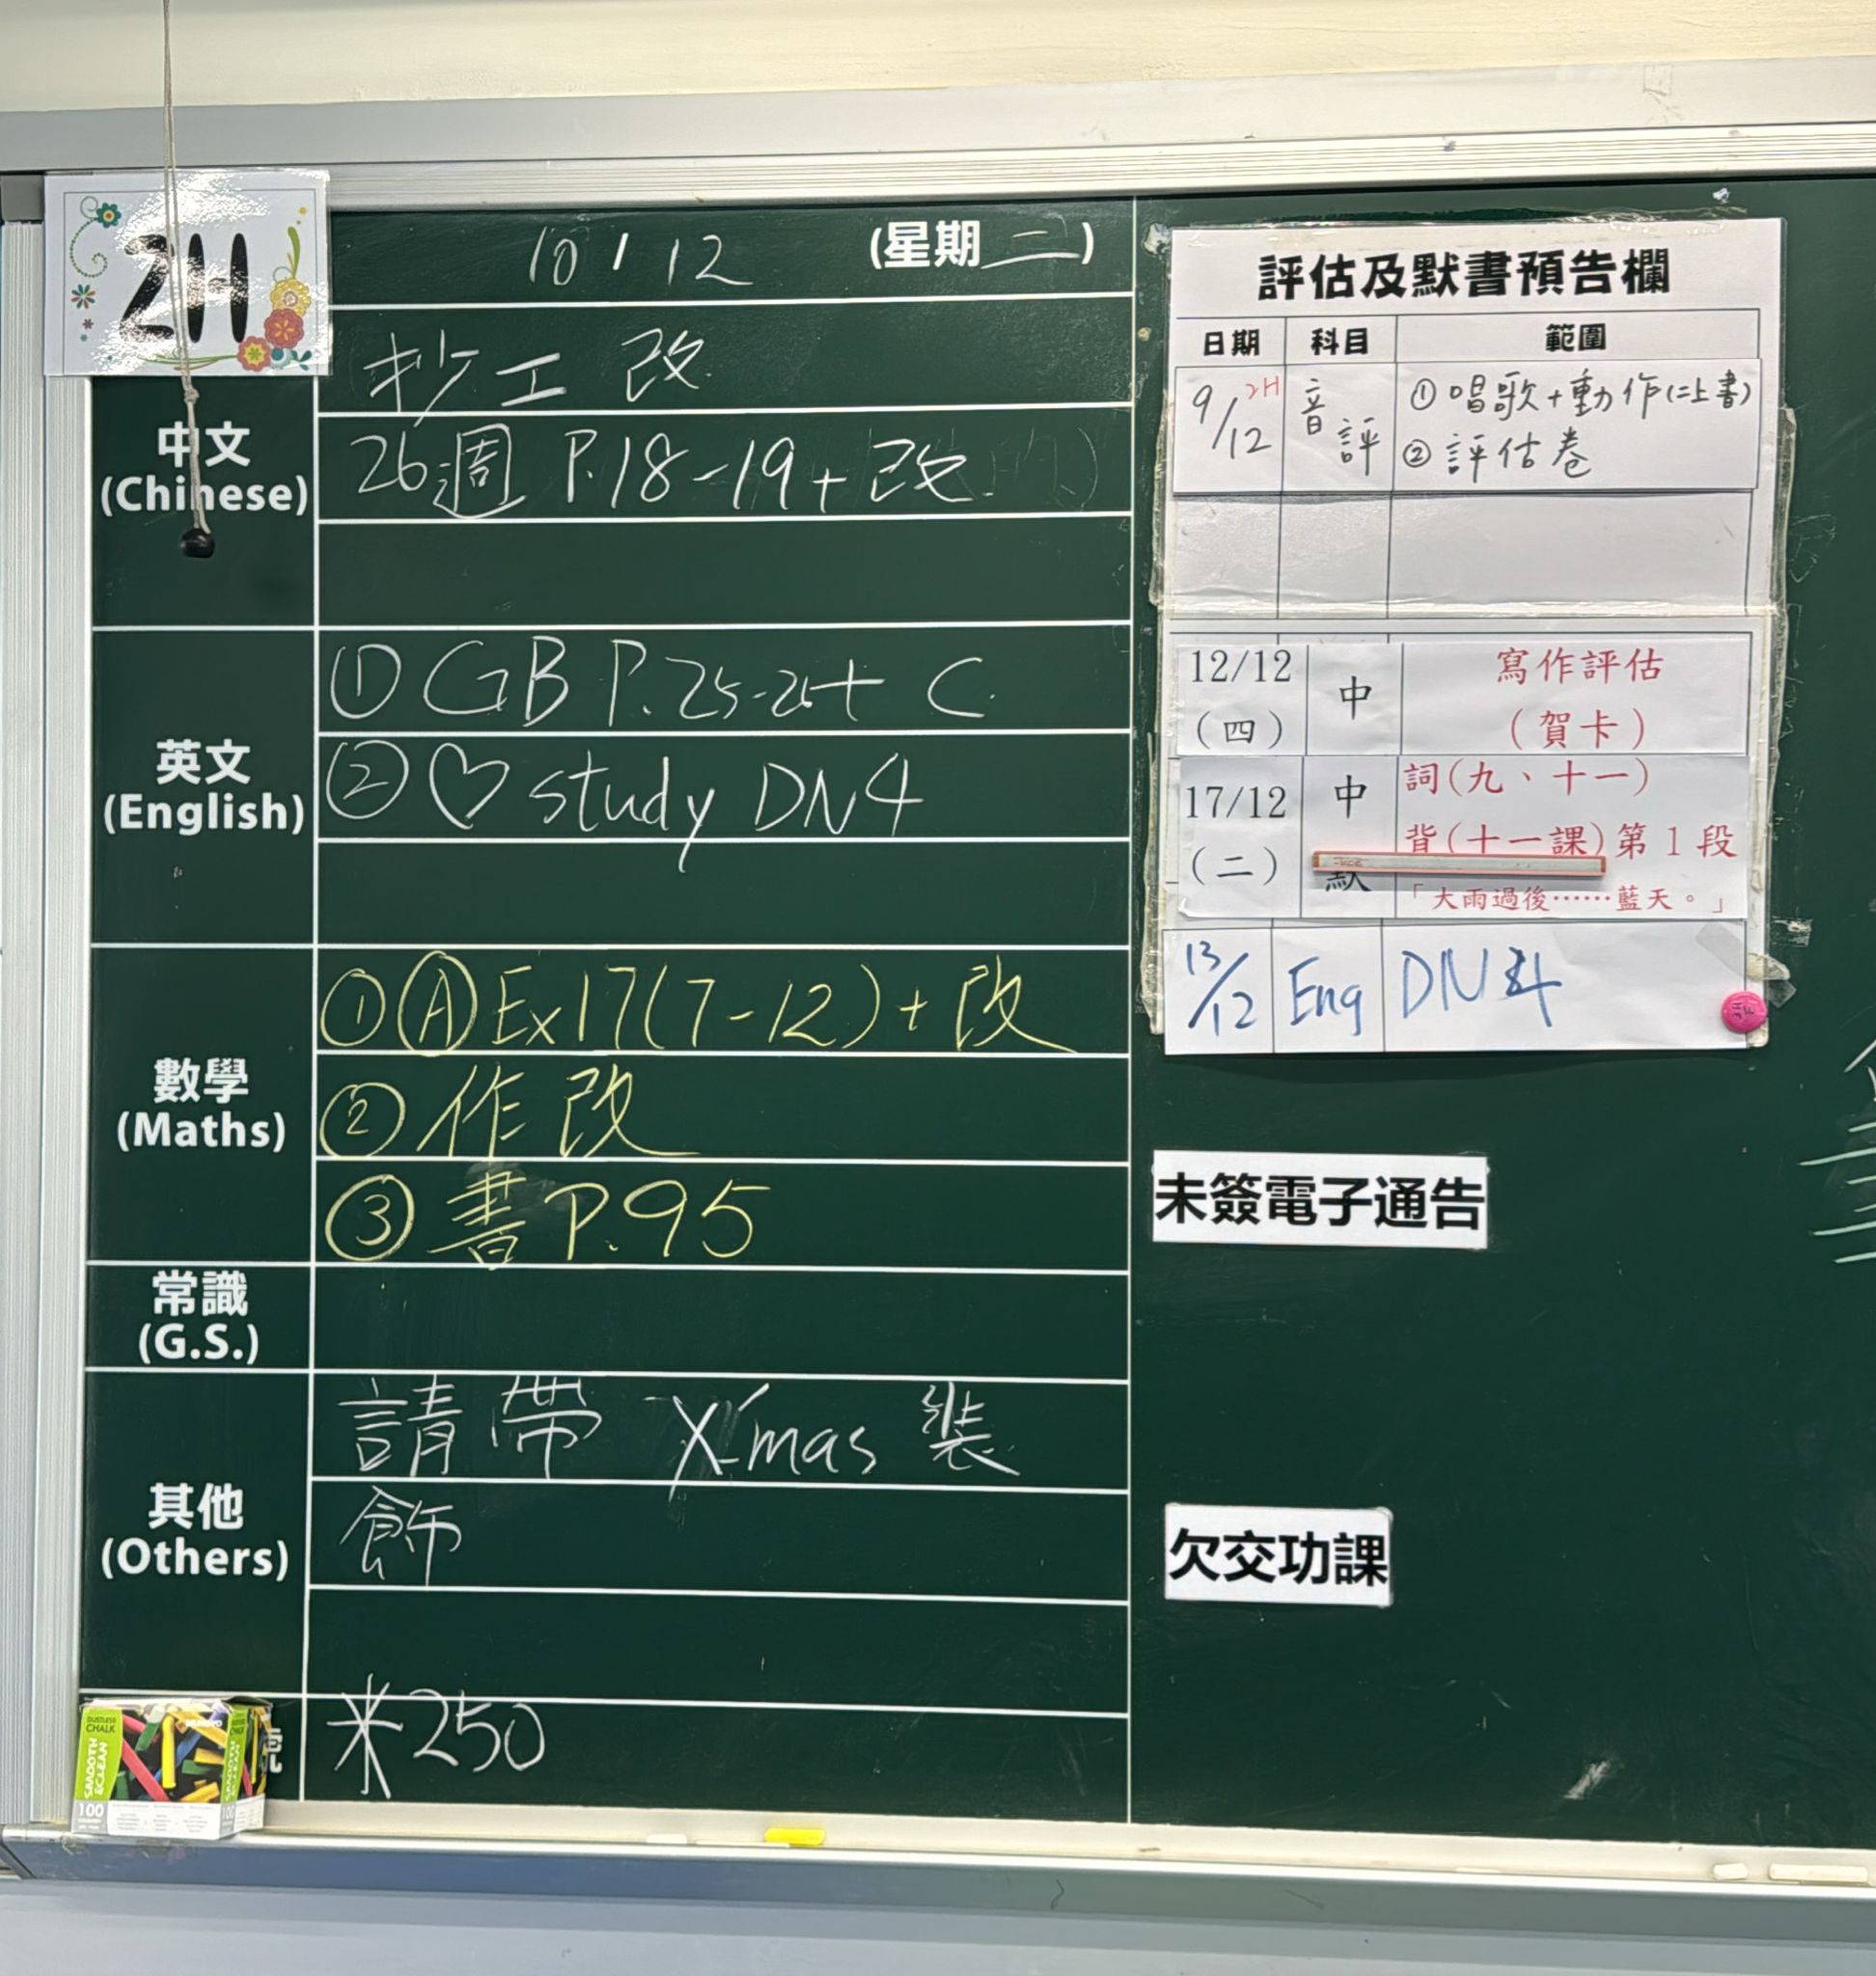 2H
10 / 12 (星期二)
中文
(Chinese)
抄工改
26週 P.18-19+改
英文
(English)
① GB P.25-26+ C
② ♡ study DN4
數學
(Maths)
① Ⓐ Ex17(7-12)+改
② 作改
③ 書 P.95
常識
(G.S.)
其他
(Others)
請帶 X'mas 裝
飾
號
米250
DUSTLESS
CHALK
SMOOTH
& CLEAN
100
評估及默書預告欄
日期 科目 範圍
9/12 2H 音評 ① 唱歌+動作(二上書)
② 評估卷
12/12 (四) 中 寫作評估
(賀卡)
17/12 (二) 中默 詞(九、十一)
背(十一課)第1段
「大雨過後……藍天。」
13/12 Eng DN4
未簽電子通告
欠交功課